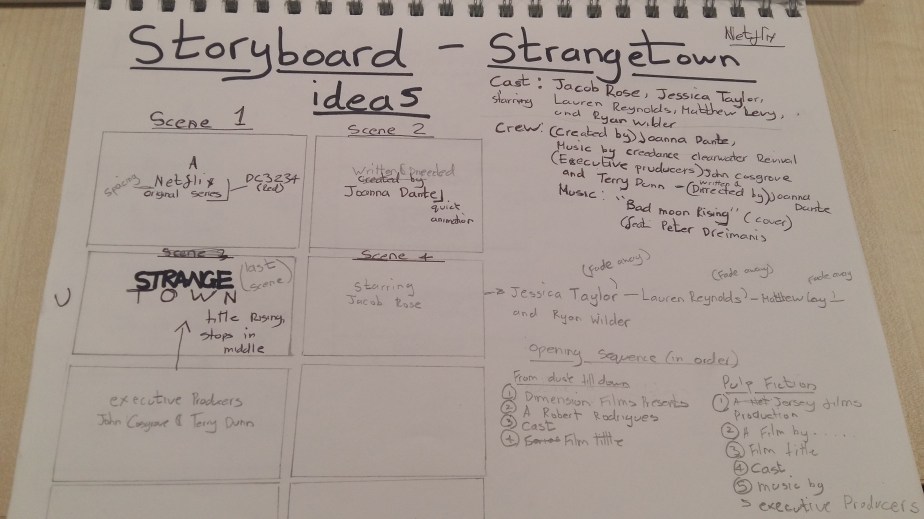 Storyboard - Strangetown
ideas
Netflix
Cast: Jacob Rose, Jessica Taylor,
starring Lauren Reynolds, Matthew Levy,
and Ryan Wilder
Crew: (Created by) Joanna Dante,
Music by creedance clearwater Revival
(Executive producers) John Cosgrove
and Terry Dunn - (written & Directed by) Joanna
Dante
Music: "Bad moon Rising" (cover)
(feat Peter Dreimanis
Scene 1
A
spacing Netflix
original series
DC3234
(Red)
Scene 2
Written & Directed
Created by
Joanna Dante
quick
animation
Scene 3
STRANGE
TOWN
(last
scene)
title Rising,
stops in
middle
Scene 4
Starring
Jacob Rose
(fade away) (fade away) fade away
Jessica Taylor - Lauren Reynolds - Matthew Levy
and Ryan Wilder
executive Producers
John Cosgrove & Terry Dunn
Opening Sequence (in order)
From dusk till dawn
1 Dimension Films Presents
2 A Robert Rodrigues
3 Cast
4 Film title
Pulp Fiction
1 A Jersey films
Production
2 A Film by.....
3 Film title
4 Cast
5 music by
executive Producers